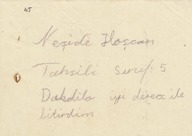 45
Neşide Hoşcan
Tahsili Sınıf: 5
iyi derece ile
bitirdim